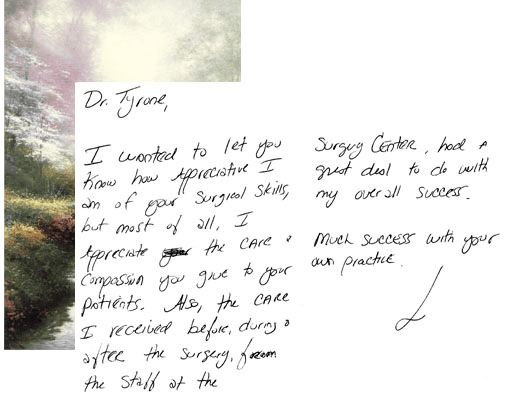 Dr. Tyrone,
I wanted to let you
know how Appreciative I
am of your Surgical Skills,
but most of all, I
Appreciate the CARE &
Compassion you give to your
patients. Also, the CARE
I received before, during &
after the surgery, from
the Staff at the
Surgery Center, had a
great deal to do with
my over all success.
Much success with your
own practice.